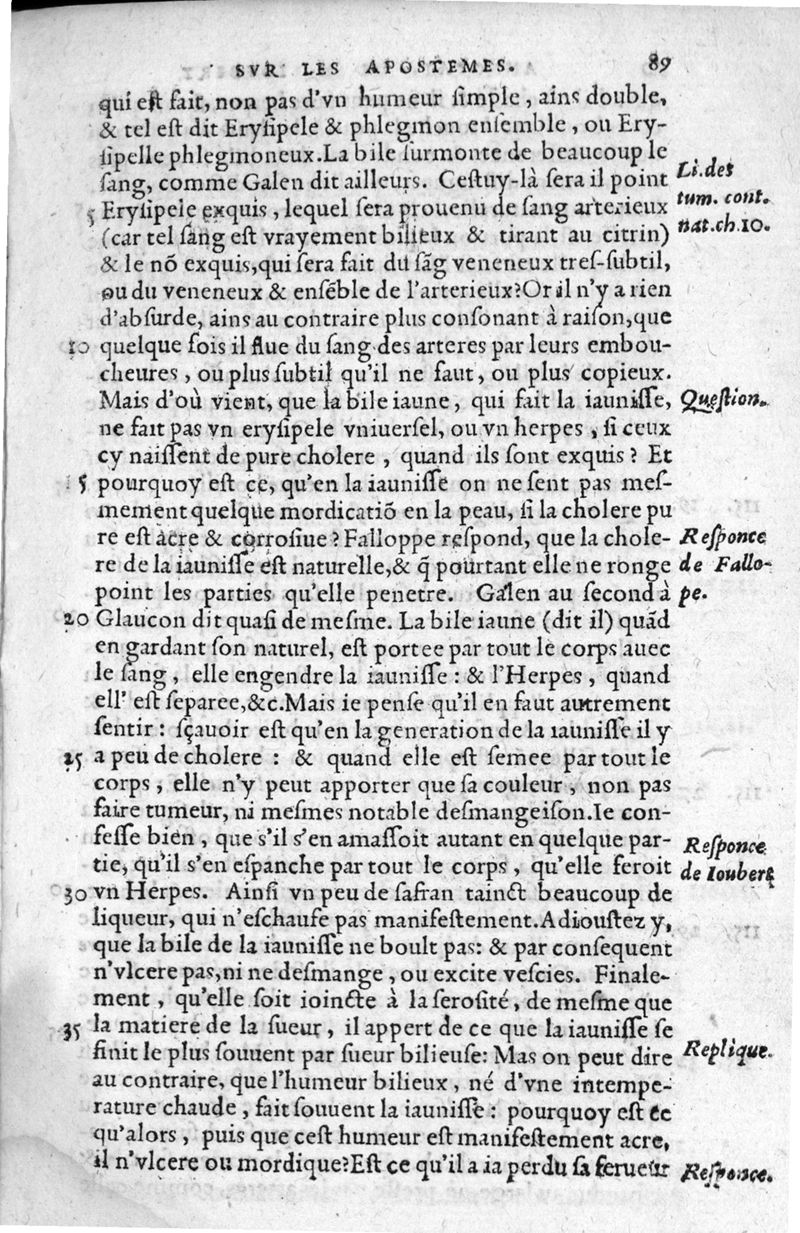 SVR LES APOSTEMES. 89
qui est fait, non pas d'vn humeur simple, ains double,
& tel est dit Erysipele & phlegmon ensemble, ou Ery-
sipelle phlegmoneux. La bile surmonte de beaucoup le
sang, comme Galen dit ailleurs. Cestuy-là sera il point
Li. des
5 Erysipele exquis, lequel sera prouenu de sang arterieux
tum. cont.
(car tel sang est vrayement bilieux & tirant au citrin)
nat. ch. 10.
& le nõ exquis, qui sera fait du sãg veneneux tres-subtil,
ou du veneneux & ensẽble de l'arterieux? Or il n'y a rien
d'absurde, ains au contraire plus consonant à raison, que
10 quelque fois il flue du sang des arteres par leurs embou-
cheures, ou plus subtil qu'il ne faut, ou plus copieux.
Mais d'où vient, que la bile iaune, qui fait la iaunisse,
Question.
ne fait pas vn erysipele vniuersel, ou vn herpes, si ceux
cy naissent de pure cholere, quand ils sont exquis? Et
15 pourquoy est ce, qu'en la iaunisse on ne sent pas mes-
mement quelque mordicatiõ en la peau, si la cholere pu
re est acre & corrosiue? Falloppe respond, que la chole-
Responce
re de la iaunisse est naturelle, & q̃ pourtant elle ne ronge
de Fallo-
point les parties qu'elle penetre. Galen au second à
pe.
20 Glaucon dit quasi de mesme. La bile iaune (dit il) quãd
en gardant son naturel, est portee par tout le corps auec
le sang, elle engendre la iaunisse: & l'Herpes, quand
ell' est separee, &c. Mais ie pense qu'il en faut autrement
sentir: sçauoir est qu'en la generation de la iaunisse il y
25 a peu de cholere: & quand elle est semee par tout le
corps, elle n'y peut apporter que sa couleur, non pas
faire tumeur, ni mesmes notable desmangeison. Ie con-
fesse bien, que s'il s'en amassoit autant en quelque par-
Responce
tie, qu'il s'en espanche par tout le corps, qu'elle feroit
de Ioubert
30 vn Herpes. Ainsi vn peu de safran tainct beaucoup de
liqueur, qui n'eschaufe pas manifestement. Adioustez y,
que la bile de la iaunisse ne boult pas: & par consequent
n'vlcere pas, ni ne desmange, ou excite vescies. Finale-
ment, qu'elle soit ioincte à la serosité, de mesme que
35 la matiere de la sueur, il appert de ce que la iaunisse se
finit le plus souuent par sueur bilieuse: Mas on peut dire
Replique.
au contraire, que l'humeur bilieux, né d'vne intempe-
rature chaude, fait souuent la iaunisse: pourquoy est ce
qu'alors, puis que cest humeur est manifestement acre,
il n'vlcere ou mordique? Est ce qu'il a ia perdu sa ferueur
Responce.